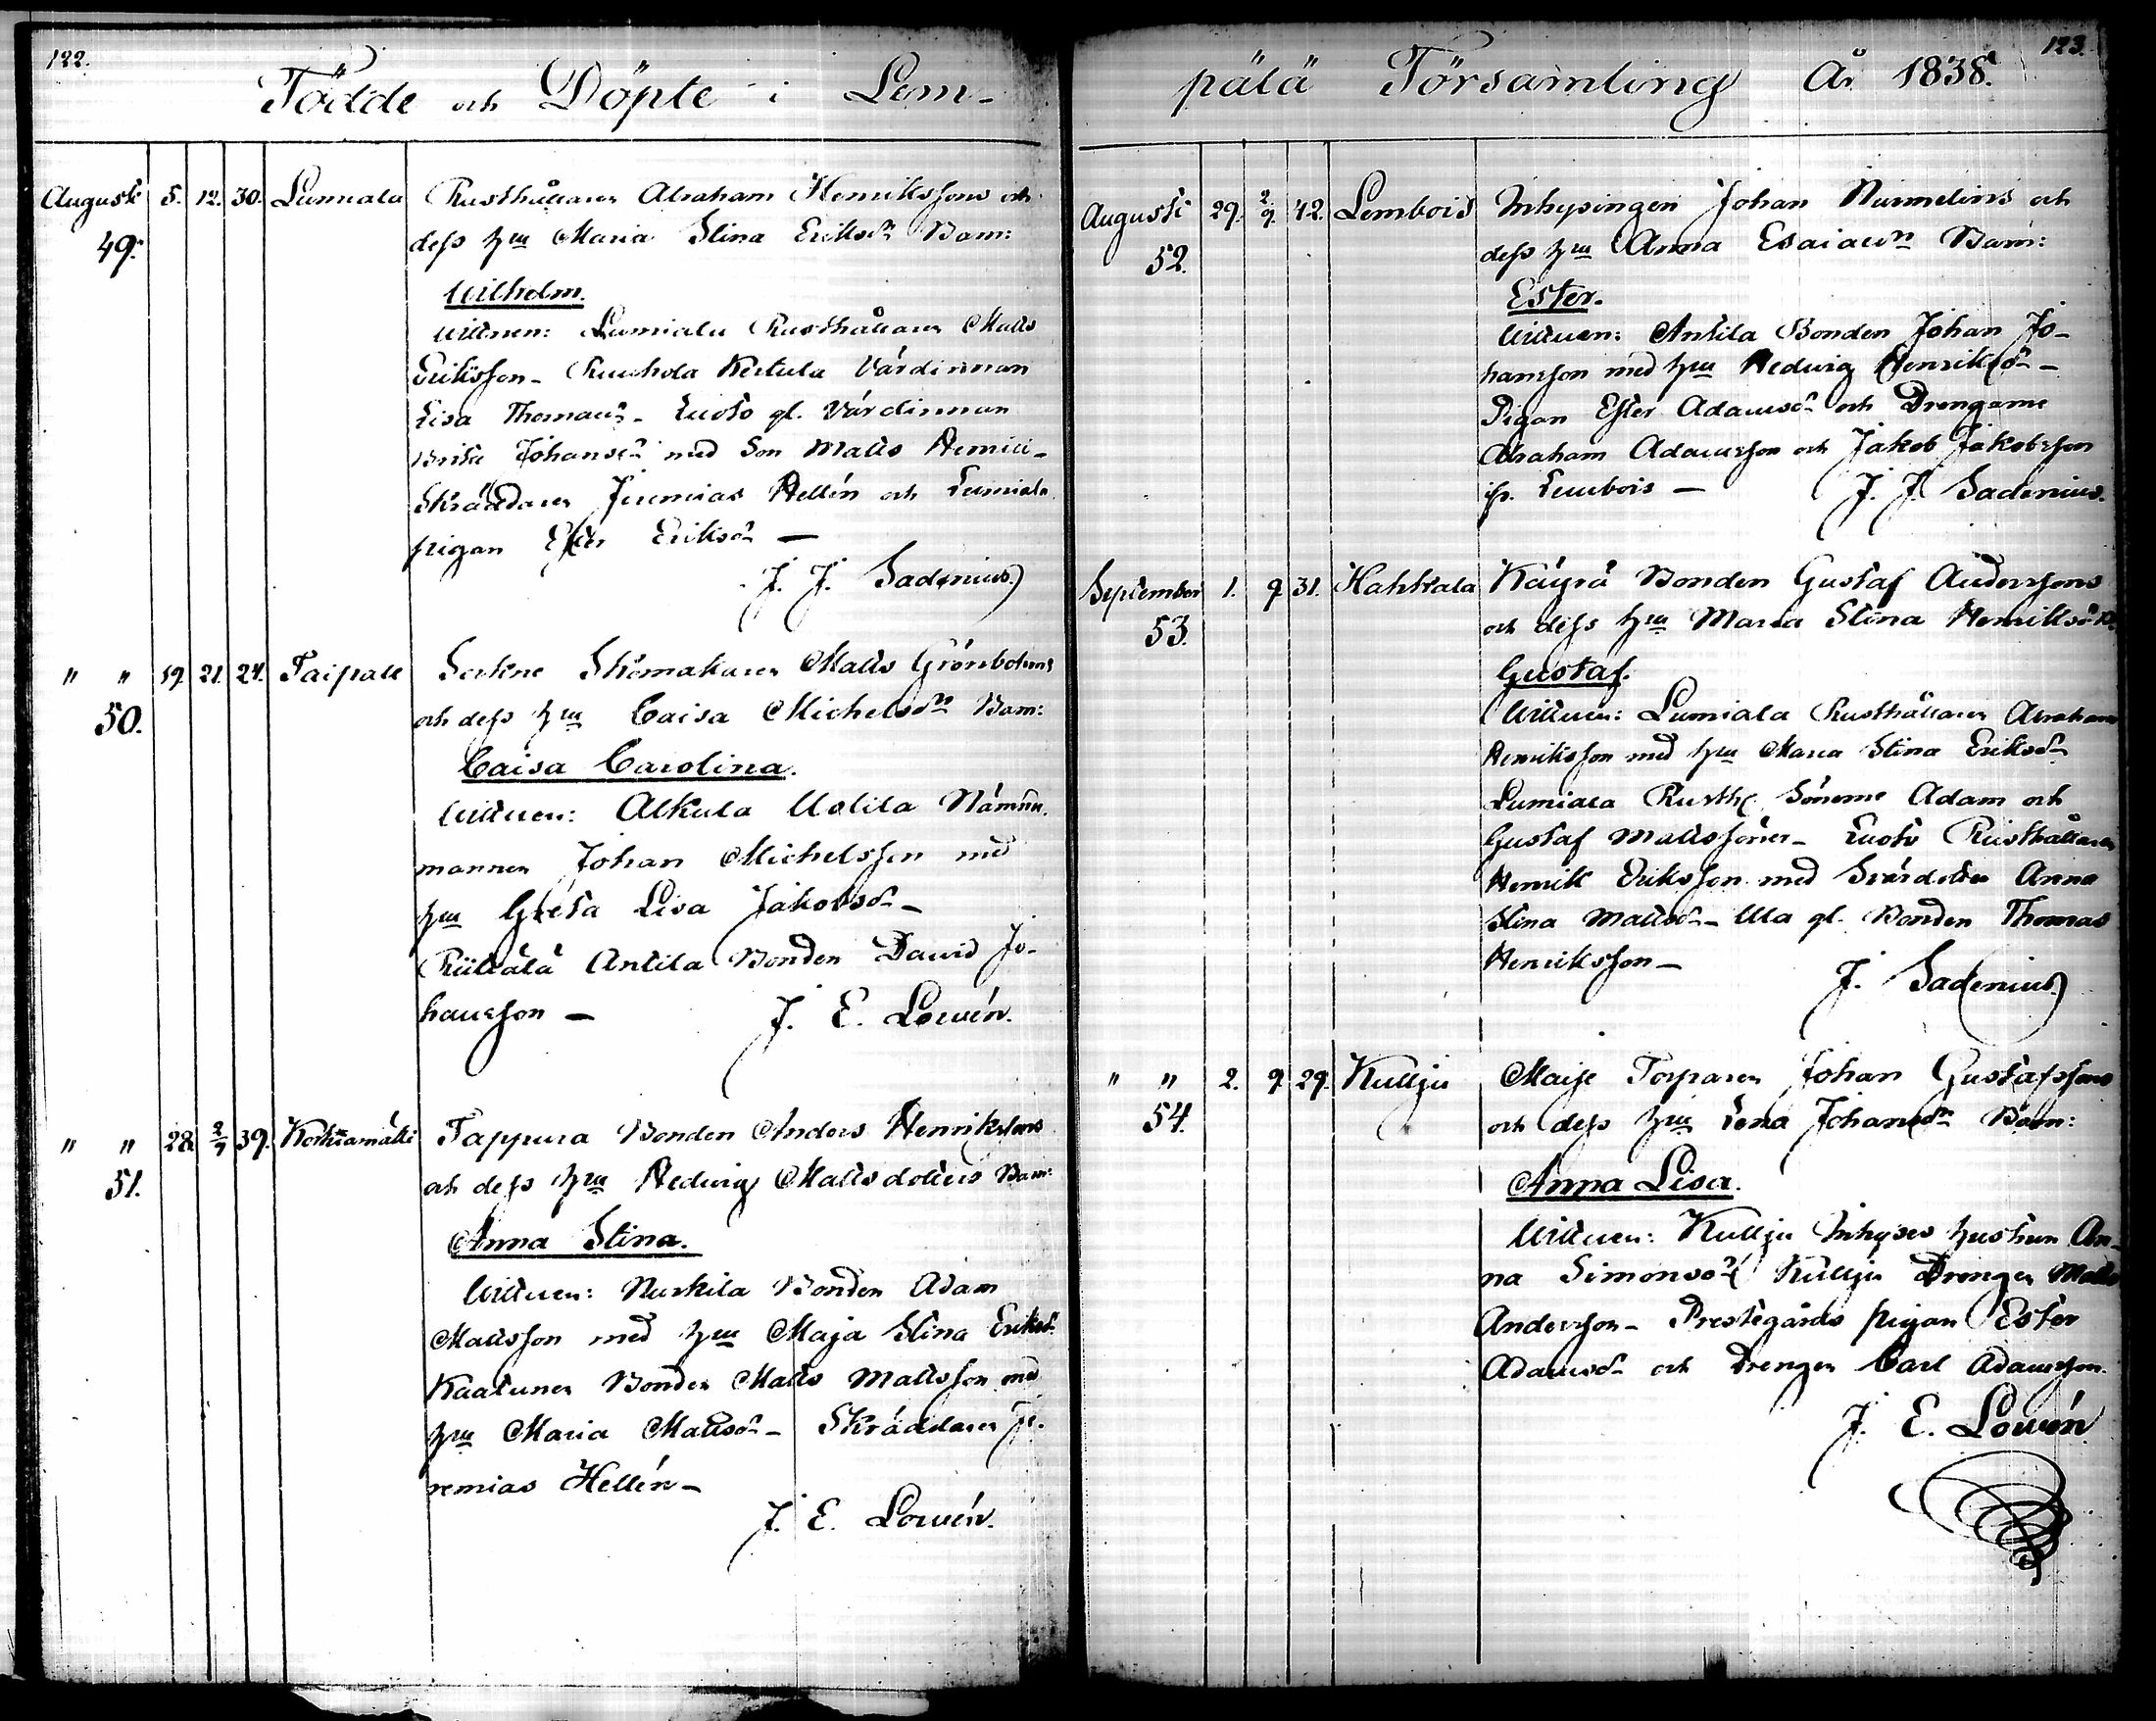 122.
Födde och Döpte i Lem-
Augusti 5. 12. 30. Lumiala Rusthållaren Abraham Henrikssons och
49. dess hru Maria Stina Eriksdrs Barn:
Wilhelm.
Wittnen: Lumiala Rusthållaren Matts
Eriksson - Kuuhola Kertula Värdinnan
Lisa Thomasdr - Luoto gl. Värdinnan
Brita Johansdr med Son Matts Henric-
Skräddaren Jeremias Hellén och Lumiala
pigan Ester Eriksdr —
J. J. Sadenius
" " 19. 21. 24. Taipale Sockne Skomakaren Matts Grönholms
50. och dess hru Caisa Michelsdrs Barn:
Caisa Carolina.
Wittnen: Alkula Uotila Nämnde-
mannen Johan Michelsson med
hru Greta Lisa Jakobsdr -
Riitiälä Antila Bonden David Jo-
hansson — J. E. Lowén.
" " 28. 2/9 39. Korkiamäki Tappura Bonden Anders Henrikssons
51. och dess hru Hedvig Mattsdotters Barn:
Anna Stina.
Wittnen: Kurkila Bonden Adam
Mattsson med hru Maja Stina Eriksdr.
Kaatunen Bonden Matts Mattsson med
hru Maria Mattsdr - Skräddaren Je-
remias Hellén -
J. E. Lowén.
123.
pälä Församling År 1838.
Augusti 29. 2/9 42. Lembois Inhysingen Johan Nurmelins och
52. dess hru Anna Esaiaedrs Barn:
Ester.
Wittnen: Antila Bonden Johan Jo-
hansson med hru Hedvig Henriksdr -
Pigan Ester Adamsdr och Drengarne
Abraham Adamsson och Jakob Jakobsson
ifr. Lembois — J. J. Sadenius.
September 1. 9. 31. Hahkala Käyrä Bonden Gustaf Anderssons
53. och dess hru Maria Stina Henriksdrs B.
Gustaf.
Wittnen: Lumiala Rusthållaren Abraham
Henriksson med hru Maria Stina Eriksdr
Lumiala Rusth. Sönerne Adam och
Gustaf Mattssöner - Luoto Rusthållaren
Henrik Eriksson med Svärdotter Anna
Stina Mattsdr - Ula gl. Bonden Thomas
Henriksson -
J. Sadenius
" " 2. 9. 29. Kuljju Maije Torparen Johan Gustafssons
54. och dess hru Lena Johansdrs Barn:
Anna Lisa.
Wittnen: Kuljju Inhyses hustrun An-
na Simonsdr Kuljju Drengen Matts
Andersson - Prestegårds pigan Ester
Adamsdr och Drengen Carl Adamsson.
J. E. Lowén